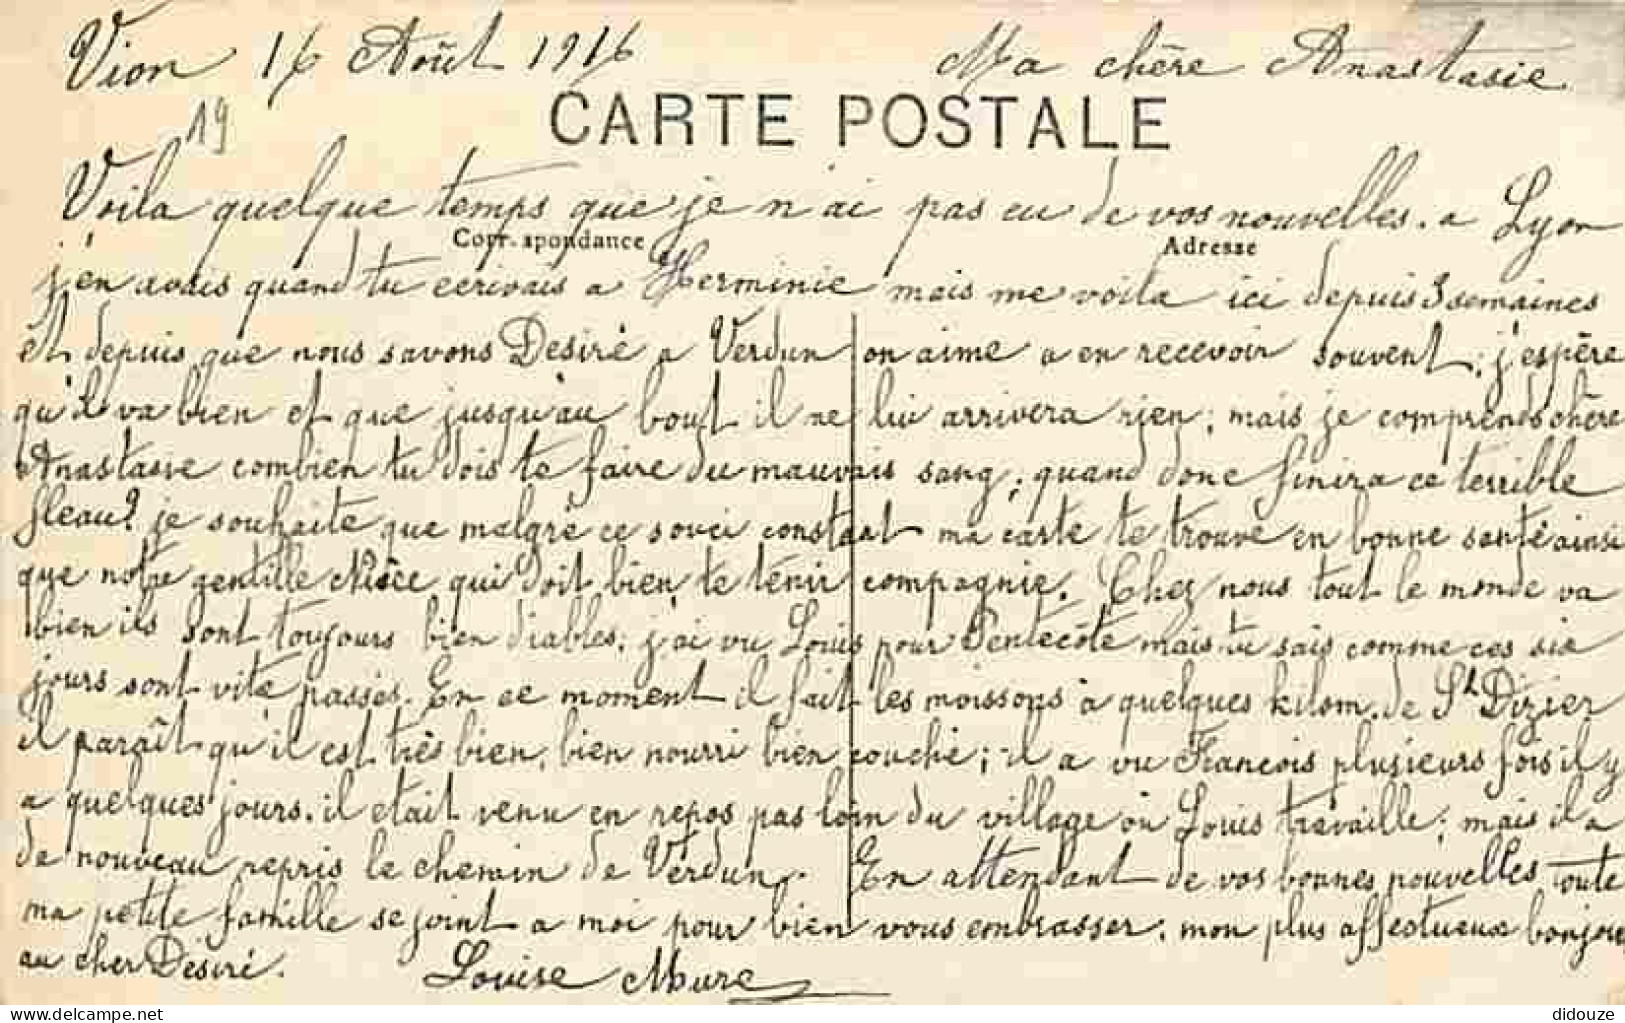 Vion 16 Août 1916 Ma chère Anastasie
19
CARTE POSTALE
Voila quelque temps que je n'ai pas eu de vos nouvelles. a Lyon
Correspondance Adresse
j'en avais quand tu ecrivais a Herminie mais me voila ici depuis 3 semaines
et depuis que nous savons Desiré a Verdun on aime a en recevoir souvent; j'espère
qu'il va bien et que jusqu'au bout il ne lui arrivera rien; mais je comprends chère
Anastasie combien tu dois te faire du mauvais sang; quand donc finira ce terrible
fleau? je souhaite que malgré ce souci constant ma carte te trouve en bonne santé ainsi
que notre gentille Nièce qui doit bien te tenir compagnie. Chez nous tout le monde va
bien ils sont toujours bien diables; j'ai vu Louis pour Pentecôte mais tu sais comme ces six
jours sont vite passés. En ce moment il fait les moissons à quelques kilom. de St Dizier
il paraît qu'il est très bien, bien nourri bien couché; il a vu Francois plusieurs fois il y
a quelques jours. il etait venu en repos pas loin du village où Louis travaille; mais il a
de nouveau repris le chemin de Verdun. En attendant de vos bonnes nouvelles toute
ma petite famille se joint a moi pour bien vous embrasser. mon plus affectueux bonjour
au cher Desiré. Louise Mure
delcampe.net
didouze